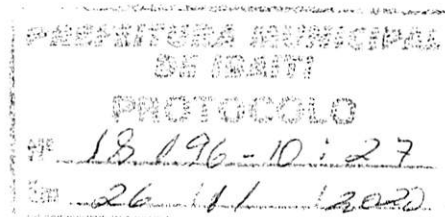 PREFEITURA MUNICIPAL
DE IBAITI
PROTOCOLO
Nº 18196-10:27
Em 26/11/2020